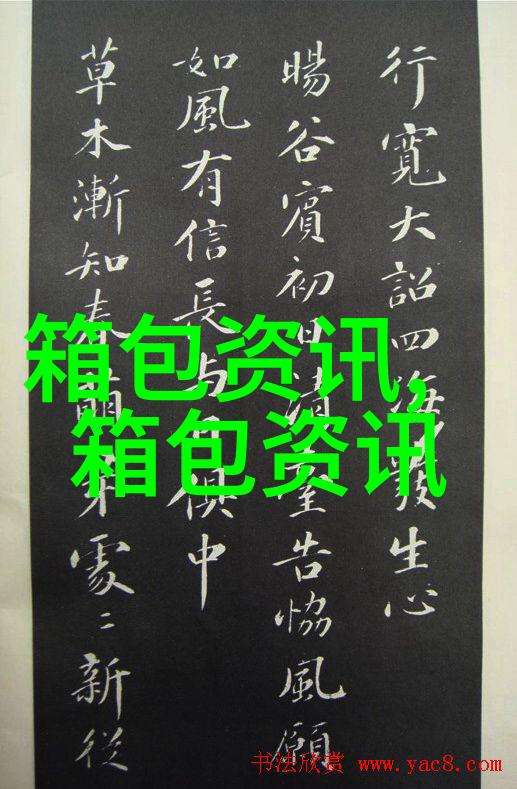 行寬大詔四海發生心
暘谷賓初日清臺告協風願
如風有信長与日俱中
草木漸知春萌芽處〻新從
箱包资讯,
箱包资讯
书法欣赏 www.yac8.com